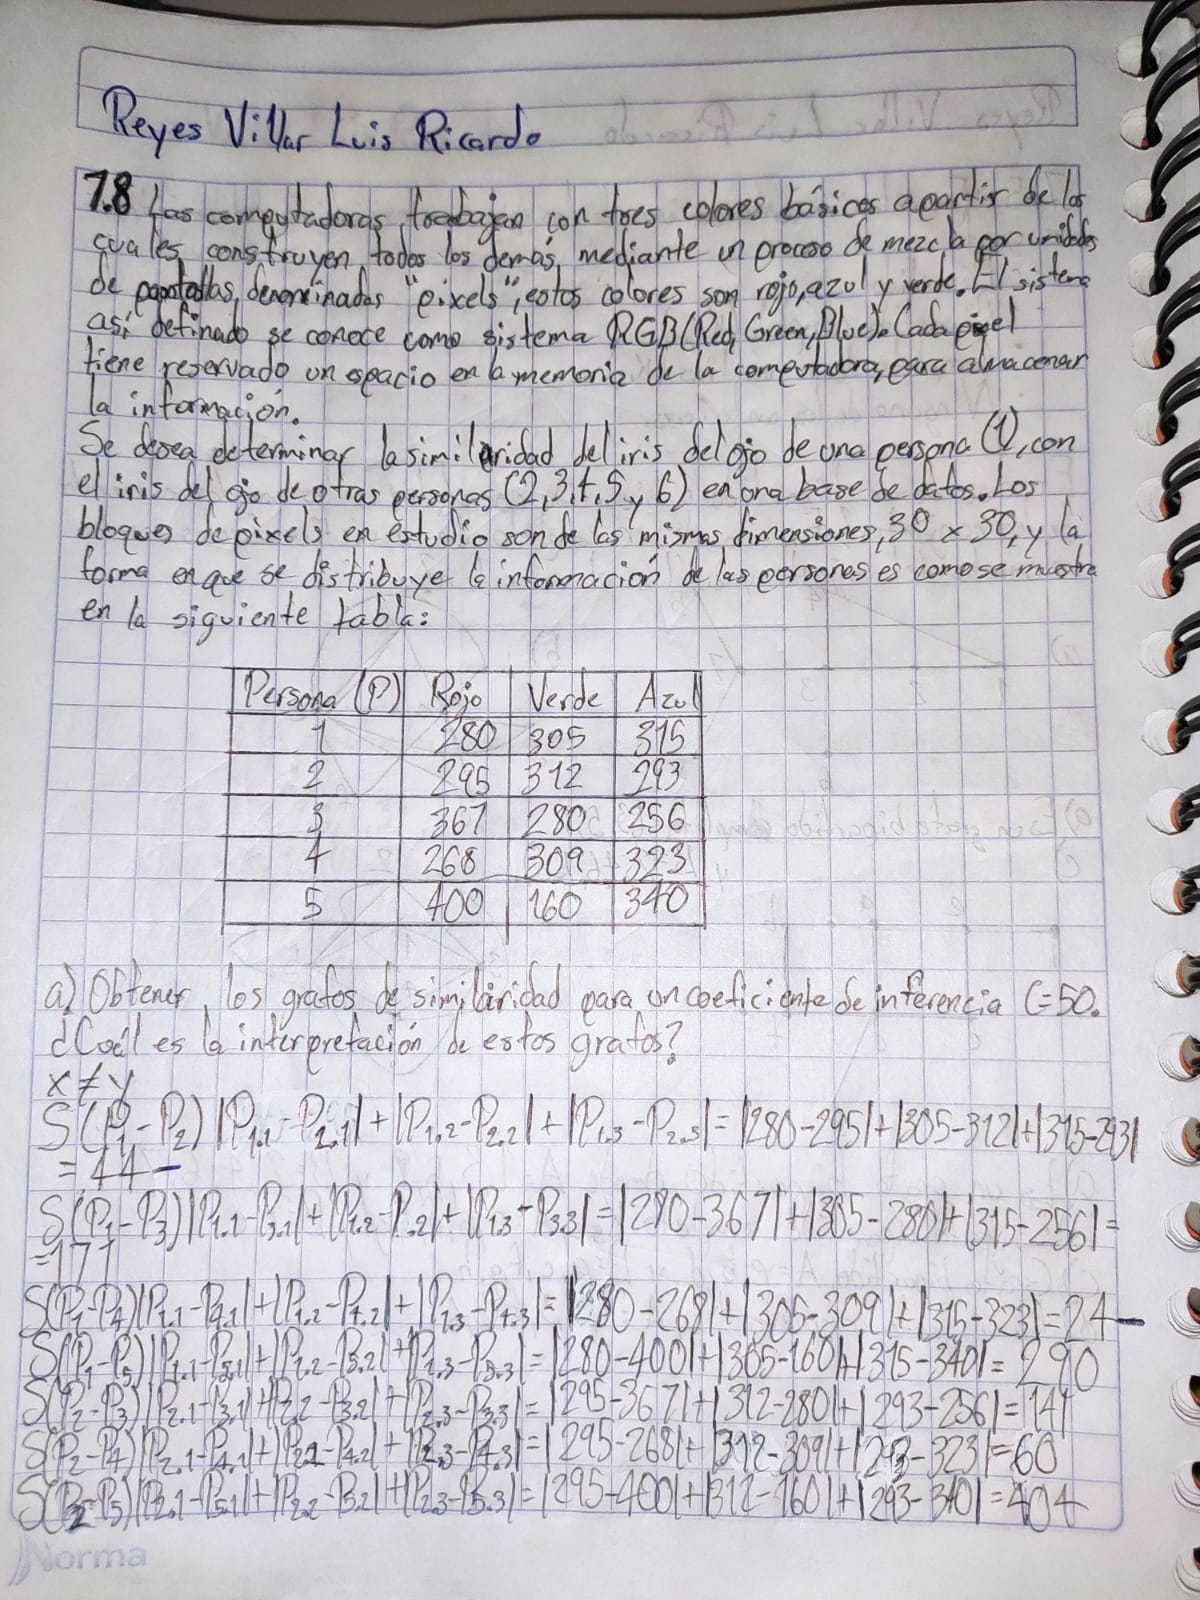 Reyes Villar Luis Ricardo
7.8 Las computadoras, trabajan con tres colores básicos a partir de los
cuales construyen todos los demás mediante un proceso de mezcla por unidades
de pantallas, denominadas "pixels", estos colores son rojo, azul y verde. El sistema
así definado se conoce como sistema RGB (Red, Green, Blue). Cada pixel
tiene reservado un espacio en la memoria de la computadora, para almacenar
la información.
Se desea determinar la similaridad del iris del ojo de una persona (1), con
el iris del ojo de otras personas (2,3,4,5 y 6) en una base de datos. Los
bloques de pixels en estudio son de las mismas dimensiones, 30 x 30, y la
forma en que se distribuye la información de las personas es como se muestra
en la siguiente tabla:
Persona (P) Rojo Verde Azul
1 280 305 315
2 295 312 293
3 367 280 256
4 268 309 323
5 400 160 340
a) Obtener los grafos de similaridad para un coeficiente de inferencia C=50.
¿Cuál es la interpretación de estos grafos?
x ≠ y
S(P1-P2) |P1.1-P2.1|+|P1.2-P2.2|+|P1.3-P2.3|=|280-295|+|305-312|+|315-293|
=44-
S(P1-P3)|P1.1-P3.1|+|P1.2-P.2|+|P1.3-P3.3|=|280-367|+|305-280|+|315-256|=
=171
S(P1-P4)|P1.1-P4.1|+|P1.2-P4.2|+|P1.3-P4.3|=|280-268|+|305-309|+|315-323|=24-
S(P1-P5)|P1.1-P5.1|+|P1.2-P5.2|+|P1.3-P5.3|=|280-400|+|305-160|+|315-340|=290
S(P2-P3)|P2.1-P3.1|+|P2.2-P3.2|+|P2.3-P3.3|=|295-367|+|312-280|+|293-256|=141
S(P2-P4)|P2.1-P4.1|+|P2.2-P4.2|+|P2.3-P4.3|=|295-268|+|312-309|+|293-323|=60
S(P2-P5)|P2.1-P5.1|+|P2.2-P5.2|+|P2.3-P5.3|=|295-400|+|312-160|+|293-340|=404
Norma